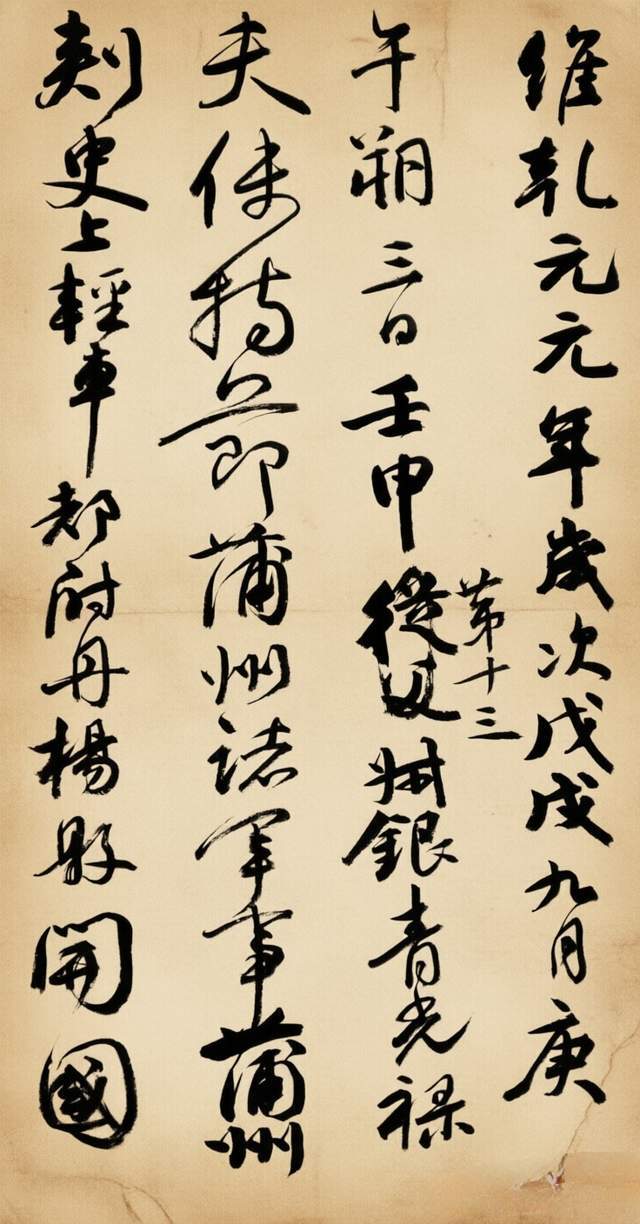 維乾元元年歲次戊戌九月庚
第十三
午朔三日壬申從父叔銀青光祿
夫使持節蒲州諸軍事蒲州
刺史上輕車都尉丹楊縣開國